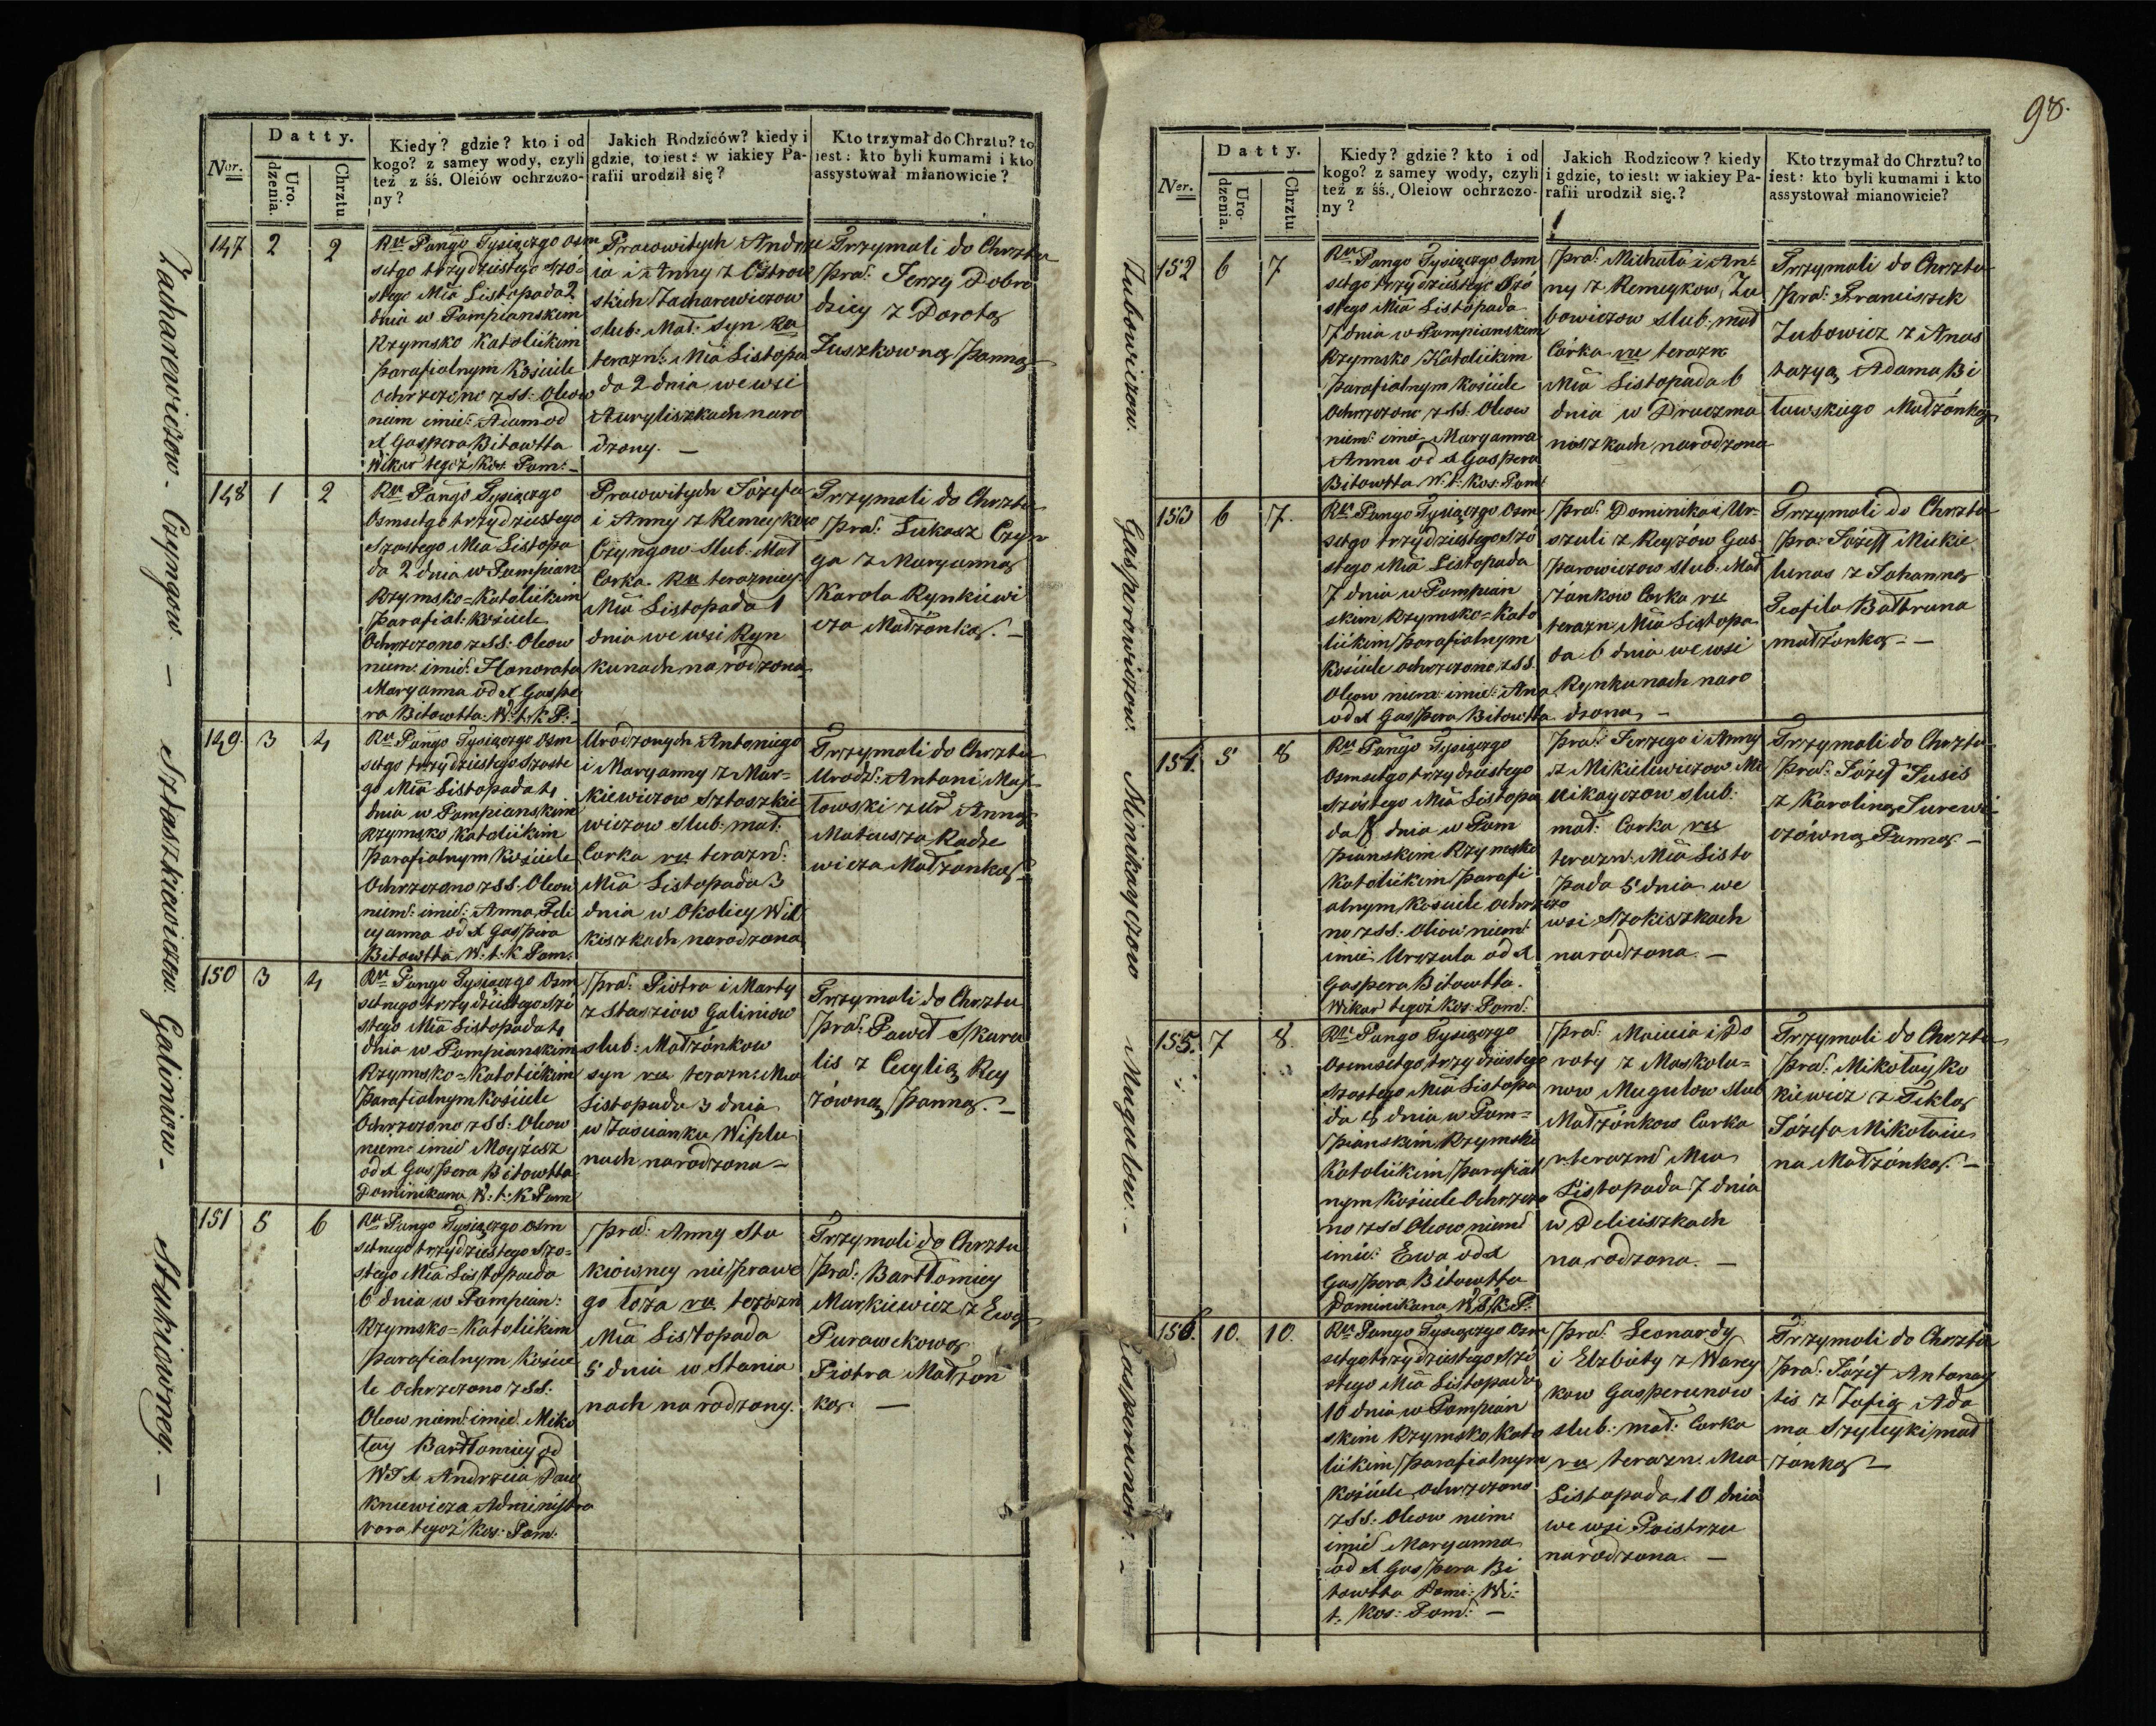 98.
Nor.
Datty.
Uro.
dzenia.
Chrztu
Kiedy? gdzie? kto i od
kogo? z samey wody, czyli
też z śś. Oleiów ochrzczo-
ny?
Jakich Rodziców? kiedy i
gdzie, to iest: w iakiey Pa-
rafii urodził się?
Kto trzymał do Chrztu? to
iest: kto byli kumami i kto
assystował mianowicie?
Zacharewiczow - Czyngow. — Sztaszkiewiczow. Galiniow - Stukiowney. —
147 2 2
Ru Pango Tysiączgo osm
setgo trzydziestego szó-
stego Mia Listopada 2
dnia w Pompianskim
Rzymsko Katolickim
parafialnym Kościele
ochrzczono z SS: Oleow
niem imie: Adam od
X Gaspera Bitowtta
Wikar tegoż Kos: Pom: -
Prawowitych Andrze
ia i Anny z Ostrow
skich Zacharewiczow
slub: Mał: syn Ru
terazn: Mia Listopa
da 2 dnia we wsi
Auryliszkach naro
dzony. —
Trzymali do Chrztu
prac: Jerzy Dobro
dziey z Dorotą
Zuszkowną panną
148 1 2
Ru Pango Tysiączgo
Osmsetgo trzydziestego
Szostego Mia Listopa
da 2 dnia w Pompian
Rzymsko=Katolickim
Parafial: Kościele
Ochrzczono z SS: Oleow
niem: imie: Honorata
Maryanna od X Gaspe
ra Bitowtta: W: t: k P: -
Prawowitych Józefa
i Anny z Remeykow
Czyngow Slub: Mał
Corka. Ru terazniey
Mia Listopada 1
dnia we wsi Ryn
kunach narodzona
Trzymali do Chrztu
prac: Lukasz Czyn
ga z Maryanną
Karola Rynkiewi
cza Małżonką. —
149. 3 4
Ru Pango Tysiączgo Osm
setgo trzydziestego Szoste
go Mia Listopada 4
dnia w Pompianskim
Rzymsko Katolickim
parafialnym Kościele
Ochrzczono z SS: Oleow
niem: imie: Anna Feli
cyanna od X Gaspera
Bitowtta W: t: k Pom:
Urodzonych Antoniego
i Maryanny z Mar=
kiewiczow Sztaszkie
wiczow slub: mał:
Corka ru terazn:
Mia Listopada 3
dnia w Okolicy Wil
kiszkach narodzona
Trzymali do Chrztu
Urodz: Antoni Mas
łowski z Ur Anną
Mateusza Radze
wicza Małżonką -
150 3 4
Ru Pango Tysiączgo Osm
setnego trzydziestego Szó
stego Mia Listopada 4
dnia w Pompianskim
Rzymsko=Katolickim
parafialnym Kościele
Ochrzczono z SS: Oleow
niem: imie Moyżesz
od X Gaspera Bitowtta
Dominikana W: t: k Pom
prac: Piotra i Marty
z Stasziow Galiniow
slub: Małżonkow
syn ru terazn: Mia
Listopada 3 dnia
w Zascianku Wiplu
nach narodzona —
Trzymali do Chrztu
prac: Paweł Skura
lis z Cecylią Rey
żówną panną. —
151 5 6
Ru Pango Tysiączgo osm
setnego trzydziestego Szo=
stego Mia Listopada
6 dnia w Pompian:
Rzymsko=Katolickim
parafialnym Koście
le Ochrzczono z SS:
Oleow niem: imie: Miko
łay Bartłomiey od
WJX Andrzeia Paw
kniewicza Administra
tora tegoż Kos: Pom:
prac: Anny Stu
kiowney nie prawe
go łoża ru terazn
Mia Listopada
5 dnia w Stania
nach narodzony.
Trzymali do Chrztu
Prac: Bartłomiey
Markiewicz z Ewą
Purawckową
Piotra Małżon
ką. —
Nor.
Datty.
Uro-
dzenia.
Chrztu
Kiedy? gdzie? kto i od
kogo? z samey wody, czyli
też z śś. Oleiow ochrzczo-
ny?
Jakich Rodzicow? kiedy
i gdzie, to iest: w iakiey Pa-
rafii urodził się.?
Kto trzymał do Chrztu? to
iest: kto byli kumami i kto
assystował mianowicie?
Zubowiczow. Gasperowiczow. Minikayczow Mugulow. - Gasperunow. -
152 6 7
Ru Pango Tysiączgo Osm
setgo trzydziestego Szó
stego Mia Listopada
7 dnia w Pompianskim
Rzymsko Katolickim
parafialnym Kościele
Ochrzczono z SS: Oleow
niem: imie Maryanna
Anna od X Gaspera
Bitowtta W: t: Kos: Pom:
prac: Michała i An=
ny z Remeykow, Zu
bowiczow slub: mał
Córka ru terazn
Mia Listopada 6
dnia w Draczma
naszkach narodzona
Trzymali do Chrztu
prac: Franciszek
Zubowicz z Anas
tazyą Adama Bi
tawskiego Małżónką
153 6 7.
Ru Pango Tysiączgo Osm
setgo trzydziestego Szó
stego Mia Listopada
7 dnia w Pompian
skim Rzymsko=Kato
lickim parafialnym
Kościele ochrzczono z SS.
Oleow niem: imie: Ana
od X Gaspera Bitowtta
prac: Dominika i Ur-
szuli z Reyżów Gas-
parowiczow slub: Mał
żónkow Corka ru
terazn Mia Listopa
da 6 dnia we wsi
Rynkunach naro
dzona, —
Trzymali do Chrztu
pra: Józef Mickie
lunas z Johanną
Teofila Bałtruna
małżonką. —
154. 5 8
Ru Pango Tysiączgo
Osmsetgo trzydziestego
szóstego Mia Listopa
da 8 dnia w Pom
pianskim Rzymsko
Katolickim parafi
alnym Kosciele ochrzczo
no z SS: Oleow niem:
imie: Urszula od X
Gaspera Bitowtta.
Wikar tegoż Kos: Pom:
prac: Jerzego i Anny
z Mikielewiczow Mi
nikayczow slub:
mał: Corka ru
terazn: Mia Listo
pada 5 dnia we
wsi Szokiszkach
narodzona. —
Trzymali do Chrztu
Prac: Józef Jusis
z Karoliną Jurewi
czówną Panną. —
155. 7 8.
Ru Pango Tysiączgo
Osmsetgo trzydziestego
szostego Mia Listopa
da 8 dnia w Pom=
pianskim Rzymsko
Katolickim parafial
nym Kościele Ochrzczo
no z SS Oleow niem
imie: Ewa od X
Gaspera Bitowtta
Dominikana W t: k P:
prac: Macieia i Do
roty z Moskolu=
now Mugulow slub
Małżónkow Corka
r terazn Mia
Listopada 7 dnia
w Deliciszkach
narodzona. —
Trzymali do Chrztu
prac: Mikołay Ko
kiewicz z Teklą
Józefa Mikołaiu
na Małżónką. —
156. 10. 10.
Ru Pango Tysiączgo Osm
setgo trzydziestego szó
stego Mia Listopada
10 dnia w Pompian
skim Rzymsko Kato
lickim parafialnym
Kościele Ochrzczono
z SS: Oleow niem:
imie Maryanna
od X Gaspera Bi
towtta Domi: Wi:
t: Kos: Pom: —
prac: Leonardy
i Elzbiety z Warey
kow Gasperunow
slub: mał: Corka
ru terazn: Mia
Listopada 10 dnia
we wsi Poistrzu
narodzona. —
Trzymali do Chrztu
prac: Józef Antonay
tis z Zofią Ada
ma Szyleyki mał
żónką —